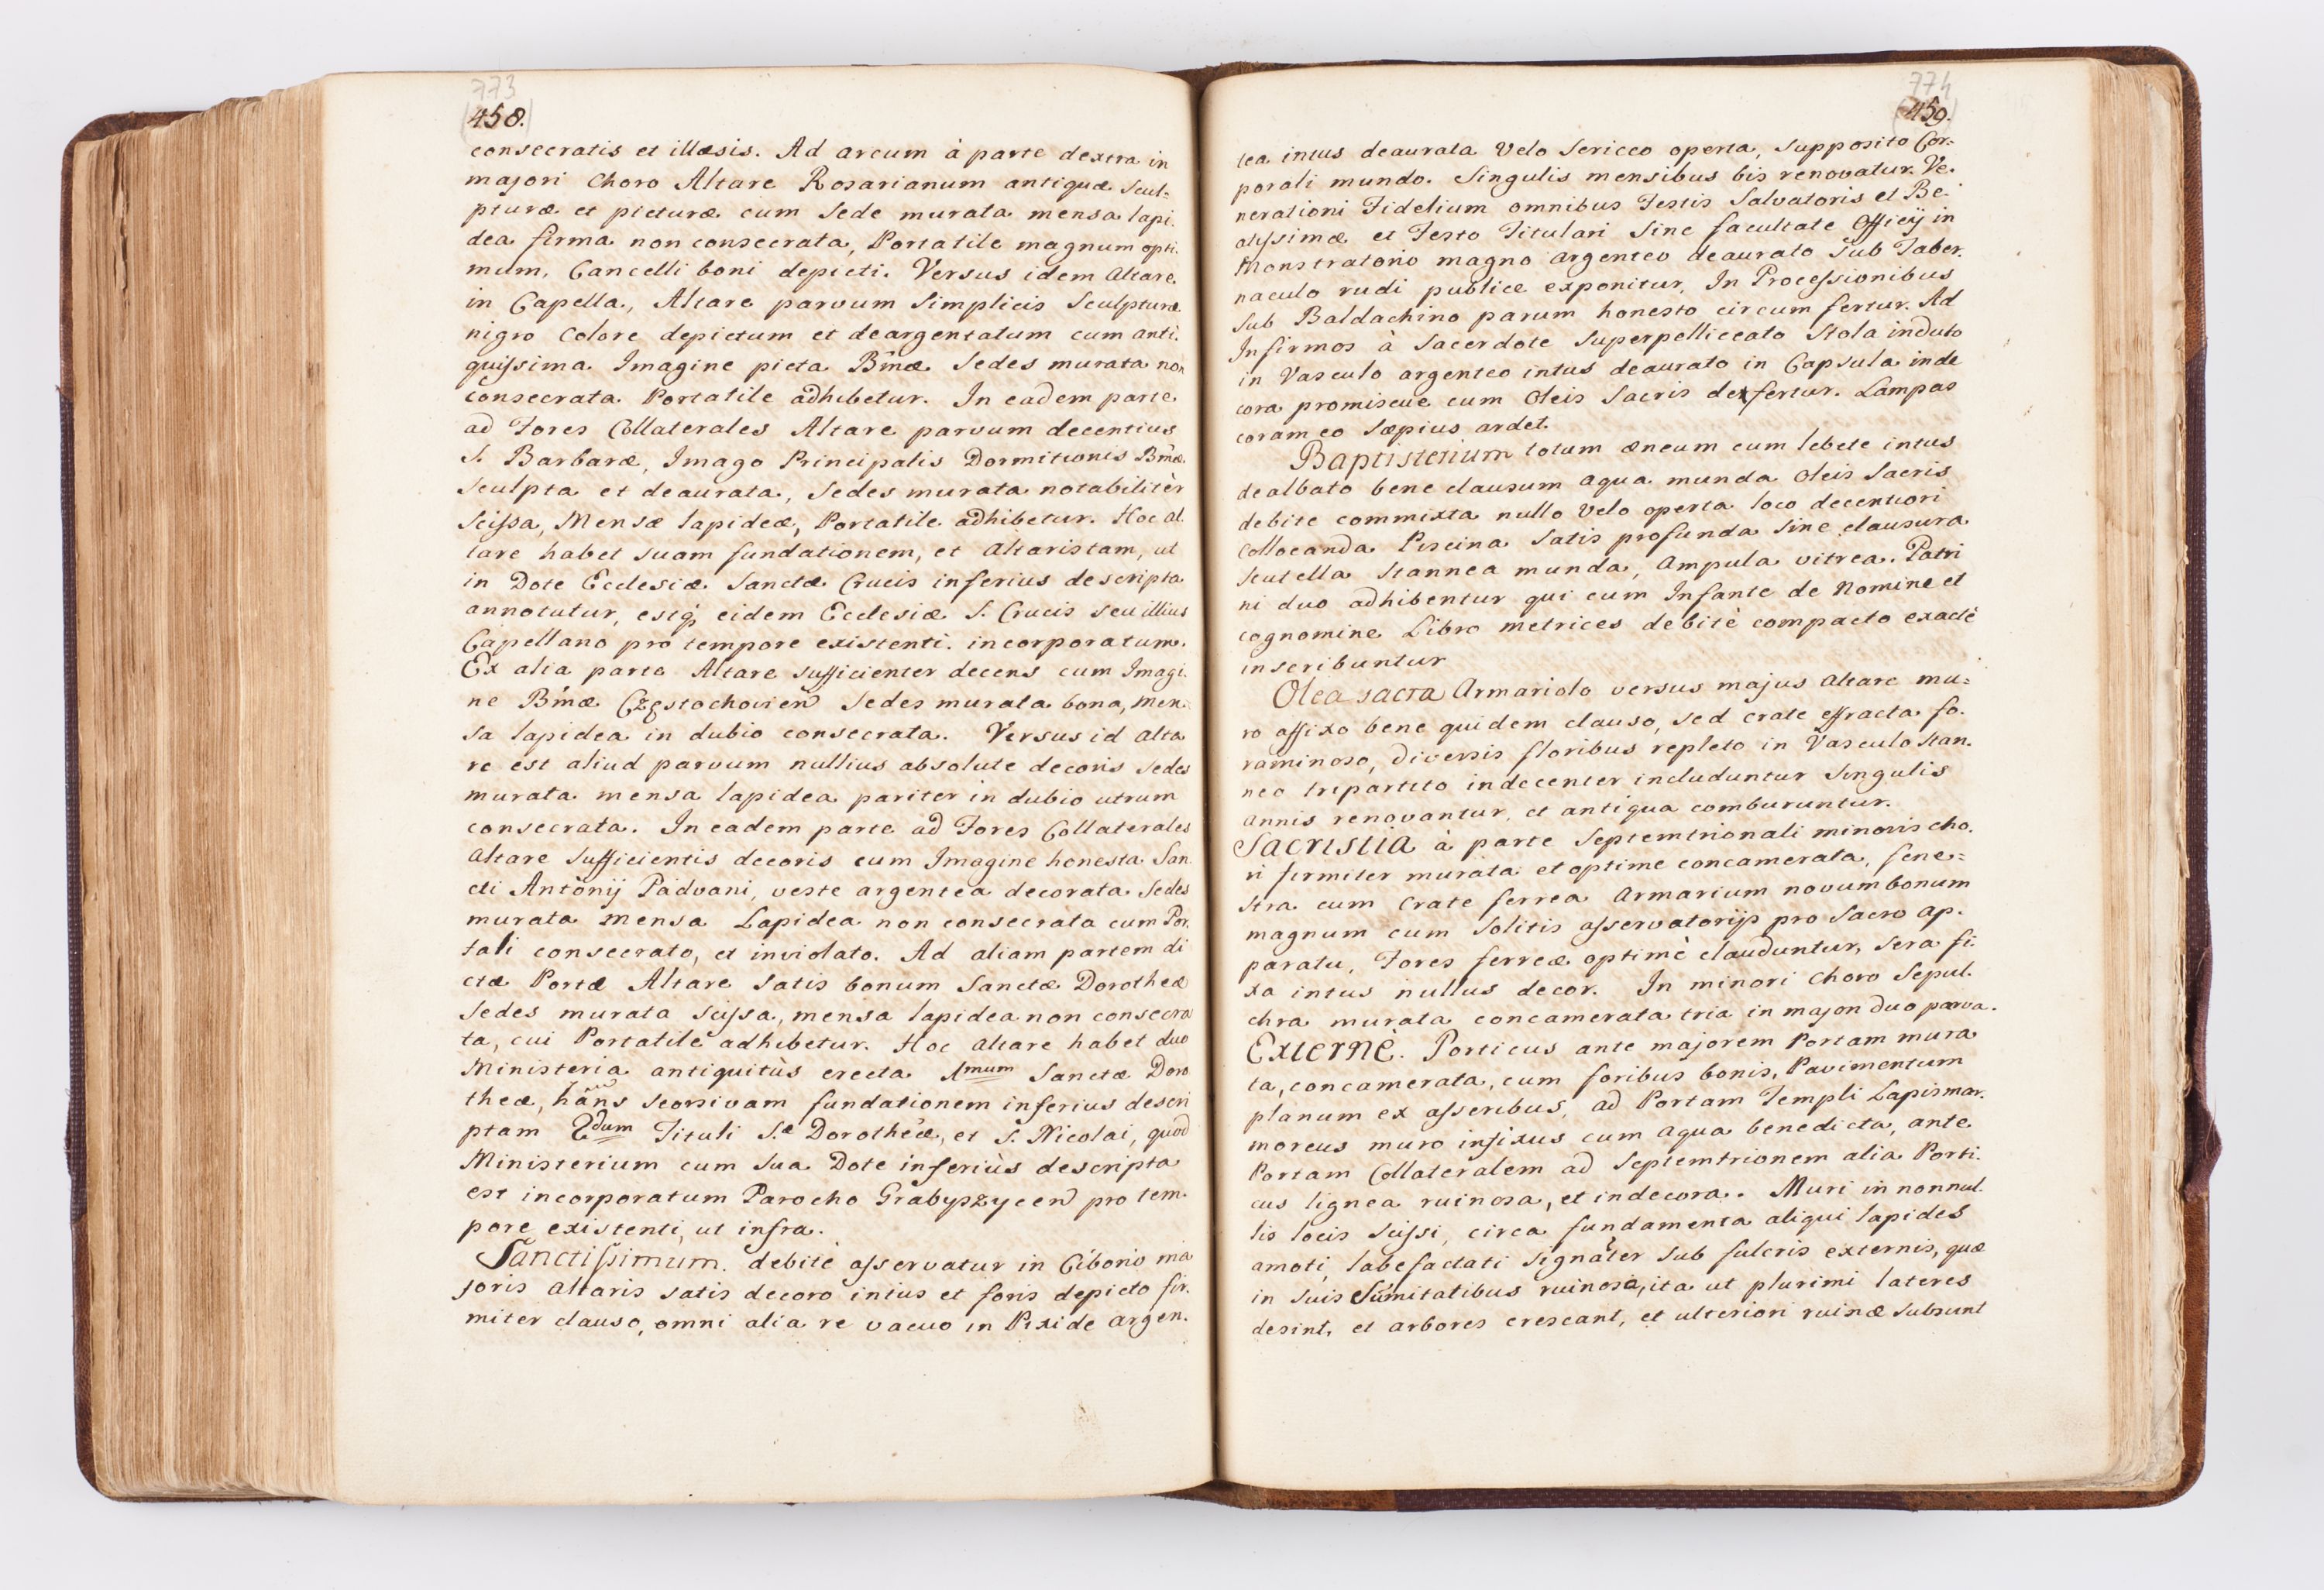 773
458.
consecratis et illæsis. Ad arcum à parte dextra in
majori Choro Altare Rosarianum antiquæ Scul-
pturæ et picturæ cum Sede murata mensa lapi-
dea firma non consecrata, Portatile magnum opti-
mum, Cancelli boni depicti. Versus idem Altare
in Capella, Altare parvum Simplicis Sculpturæ
nigro Colore depictum et deargentatum cum anti-
quissima Imagine picta Bmæ Sedes murata non
consecrata Portatile adhibetur. In eadem parte
ad Fores Collaterales Altare parvum decentius
S. Barbaræ, Imago Principalis Dormitionis Bmæ
Sculpta et deaurata, Sedes murata notabilitèr
Scissa, Mensæ lapideæ, Portatile adhibetur. Hoc al
tare habet suam fundationem, et Altaristam, ut
in Dote Ecclesiæ Sanctæ Crucis inferius descripta
annotutur, estq eidem Ecclesiæ S. Crucis seu illius
Capellano pro tempore existenti incorporatum.
Ex alia parte Altare sufficienter decens cum Imagi-
ne Bmæ Częstochovien Sedes murata bona, men-
sa lapidea in dubio consecrata. Versus id Alta
re est aliud parvum nullius absolute decoris Sedes
murata mensa lapidea pariter in dubio utrum
consecrata. In eadem parte ad Fores Collaterales
Altare Sufficientis decoris cum Imagine honesta San
cti Antònij Padvani, veste argentea decorata Sedes
murata mensa Lapidea non consecrata cum Por-
tali consecrato, et inviolato. Ad aliam partem di
ctæ Portæ Altare Satis bonum Sanctæ Dorotheæ
Sedes murata scissa, mensa lapidea non consecra
ta, cui Portatile adhibetur. Hoc Altare habet duo
Ministeria antiquitùs erecta 1mum Sanctæ Doro
theæ, hāns seorsivam fundationem inferius descri
ptam 2dum Tituli S.æ Dorotheæ, et S. Nicolai, quod
Ministerium cum Sua Dote inferiùs descripta
est incorporatum Parocho Grabyszycen pro tem-
pore existenti, ut infra.
Sanctissimum debitè asservatur in Ciborio ma
joris Altaris satis decoro intus et foris depicto fir-
miter clauso, omni alia re vacuo in Pixide argen-
774
459.
tea intus deaurata Velo Sericeo operta, supposito Cor-
porali mundo. Singulis mensibus bis renovatur. Ve-
nerationi Fidelium omnibus Festis Salvatoris et Be-
atissimæ et Festo Titulari Sine facultate Officij in
Monstratorio magno argenteo deaurato Sub Taber-
naculo rudi publice exponitur, In Processionibus
Sub Baldachino parum honesto circum fertur. Ad
Infirmos à Sacerdote Superpelliceato Stola induto
in Vasculo argenteo intus deaurato in Capsula inde
cora promiscue cum Oleis Sacris defertur. Lampas
coram eo Sæpius ardet.
Baptisterium totum æneum cum lebete intus
dealbato bene clausum Aqua munda Oleis Sacris
debite commixta nullo Velo operta loco decentiori
Collocanda Piscina Satis profunda Sine clausura
Scutella Stannea munda, Ampula vitrea. Patri
ni duo adhibentur qui cum Infante de Nomine et
cognomine Libro metrices debitè compacto exactè
inscribuntur
Olea sacra Armariolo versus majus Altare mu-
ro affixo bene quidem clauso, sed crate effracta fo-
raminoso, diversis floribus repleto in Vasculo Stan-
neo tripartito indecenter includuntur Singulis
annis renovantur, et antiqua comburuntur.
Sacristia à parte Septemtrionali minoris cho-
ri firmiter murata et optime concamerata, fene-
stra cum Crate ferrea Armarium novum bonum
magnum cum Solitis asservatorijs pro Sacro ap-
paratu, Fores ferreæ optimè clauduntur, sera fi-
xa intus nullus decor. In minori Choro Sepul-
chra murata concamerata tria in majori duo parva.
Externè. Porticus ante majorem Portam mura
ta, concamerata, cum foribus bonis, Pavimentum
planum ex asseribus, ad Portam Templi Lapis mar-
moreus muro infixus cum aqua benedicta, ante
Portam Collateralem ad Septemtrionem alia Porti-
cus lignea ruinosa, et indecora. Muri in nonnul-
lis locis scissi, circa fundamenta aliqui lapides
amoti, labefactati signater Sub fulcris externis, quæ
in suis Sumitatibus ruinosa, ita ut plurimi lateres
desint, et arbores crescant, et ulteriori ruinæ subsunt